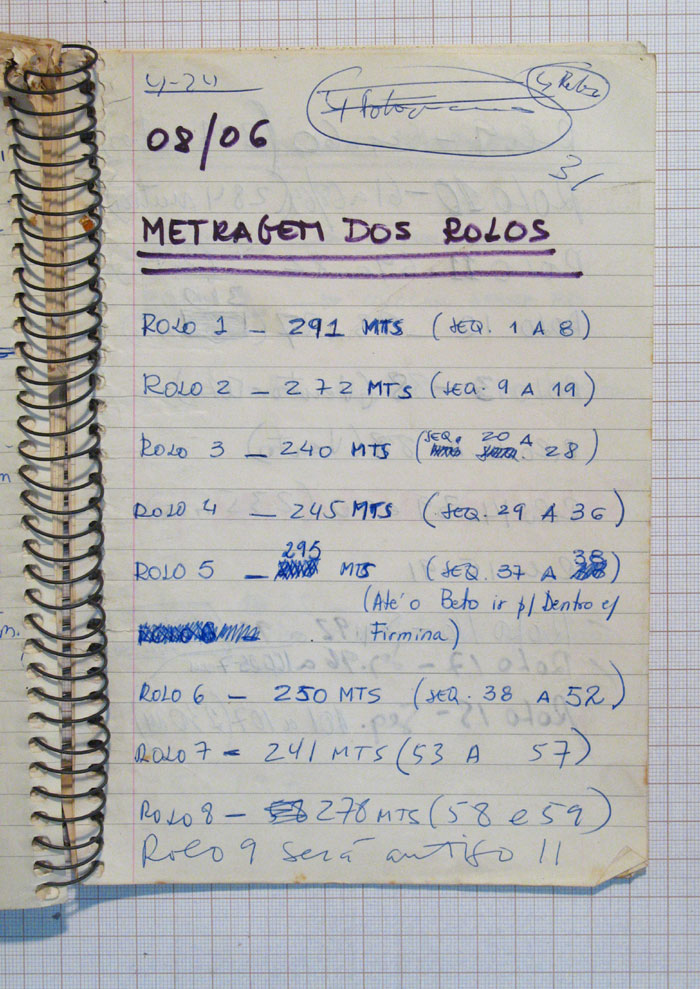 4-24
08/06
31
METRAGEM DOS ROLOS
ROLO 1 - 291 MTS (SEQ. 1 A 8)
ROLO 2 - 272 MTS (SEQ. 9 A 19)
ROLO 3 - 240 MTS (SEQ. 20 A 28)
ROLO 4 - 245 MTS (SEQ. 29 A 36)
ROLO 5 - 295 MTS (SEQ. 37 A 38)
(Até o Beto ir p/ Dentro c/
Firmina)
ROLO 6 - 250 MTS (SEQ. 38 A 52)
ROLO 7 - 241 MTS (53 A 57)
ROLO 8 - 278 MTS (58 e 59)
Rolo 9 será antigo 11